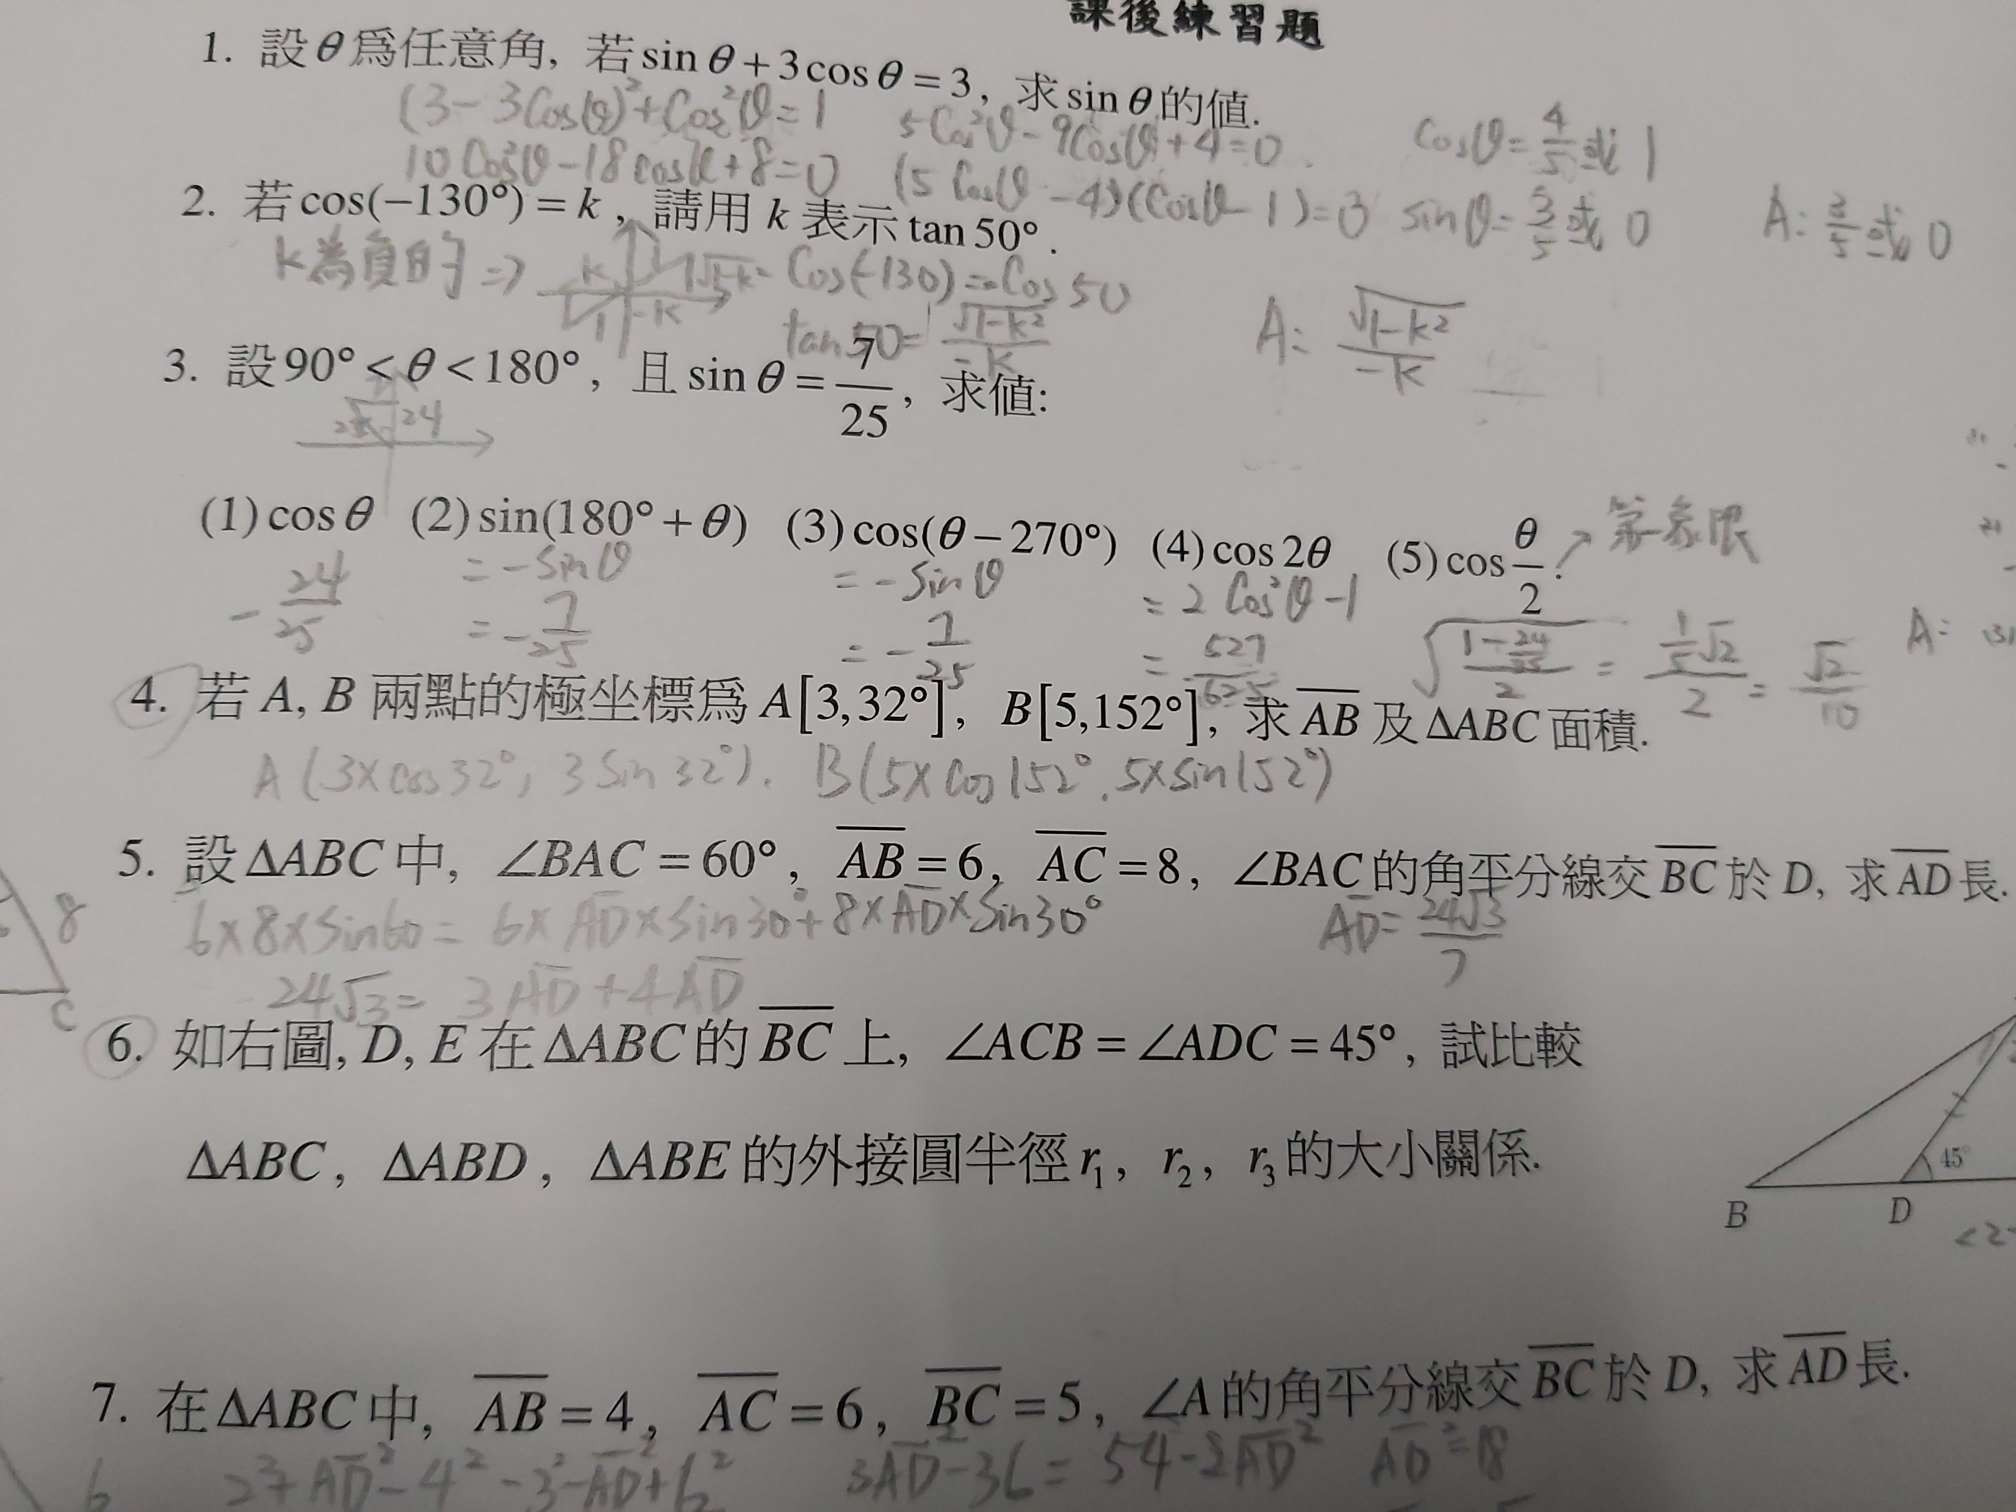 課後練習題
1. 設θ爲任意角, 若sinθ+3cosθ=3, 求sinθ的值.
(3-3Cosθ)²+Cos²θ=1 5Cos²θ-9Cosθ+4=0 Cosθ=4/5或1
10Cos²θ-18cosθ+8=0 (5Cosθ-4)(Cosθ-1)=0 sinθ=3/5或0 A: 3/5或0
2. 若cos(-130°)=k, 請用k表示tan50°.
k為負的 => k 1 √1-k² 1 -k Cos(-130)=-Cos50
tan50= √1-k²/-k A: √1-k²/-k
3. 設90°<θ<180°, 且sinθ=7/25, 求值:
24
(1)cosθ (2)sin(180°+θ) (3)cos(θ-270°) (4)cos2θ (5)cos θ/2. → 第一象限
-24/25 =-Sinθ =-Sinθ =2Cos²θ-1
=-7/25 =-7/25 =527/625 √(1-24/25)/2 = 1/5√2/2 = √2/10 A:
4. 若A, B兩點的極坐標爲A[3,32°], B[5,152°], 求AB及ΔABC面積.
A(3×cos32°, 3Sin32°). B(5×Cos152°, 5×sin152°)
5. 設ΔABC中, ∠BAC=60°, AB=6, AC=8, ∠BAC的角平分線交BC於D, 求AD長.
8
6×8×Sin60= 6×AD×Sin30°+8×AD×Sin30° AD=24√3/7
24√3= 3AD+4AD
C
6. 如右圖, D, E在ΔABC的BC上, ∠ACB=∠ADC=45°, 試比較
ΔABC, ΔABD, ΔABE的外接圓半徑r₁, r₂, r₃的大小關係.
45°
B D
7. 在ΔABC中, AB=4, AC=6, BC=5, ∠A的角平分線交BC於D, 求AD長.
6 2²+AD²-4² -3²-AD²+6² 3AD²-36=54-2AD² AD²=18